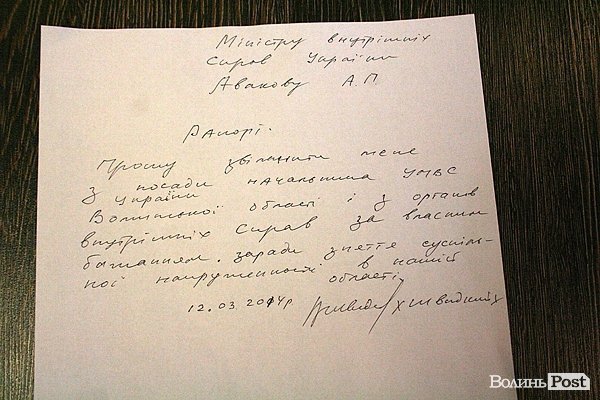 Міністру внутрішніх
Справ України
Авакову А.П
Рапорт.
Прошу звільнити мене
з посади начальника УМВС
України
Волинської області і з органів
внутрішніх справ за власним
бажанням, заради зняття суспіль-
ної напруженності в нашій
області.
12.03.2014р
ВолиньPost